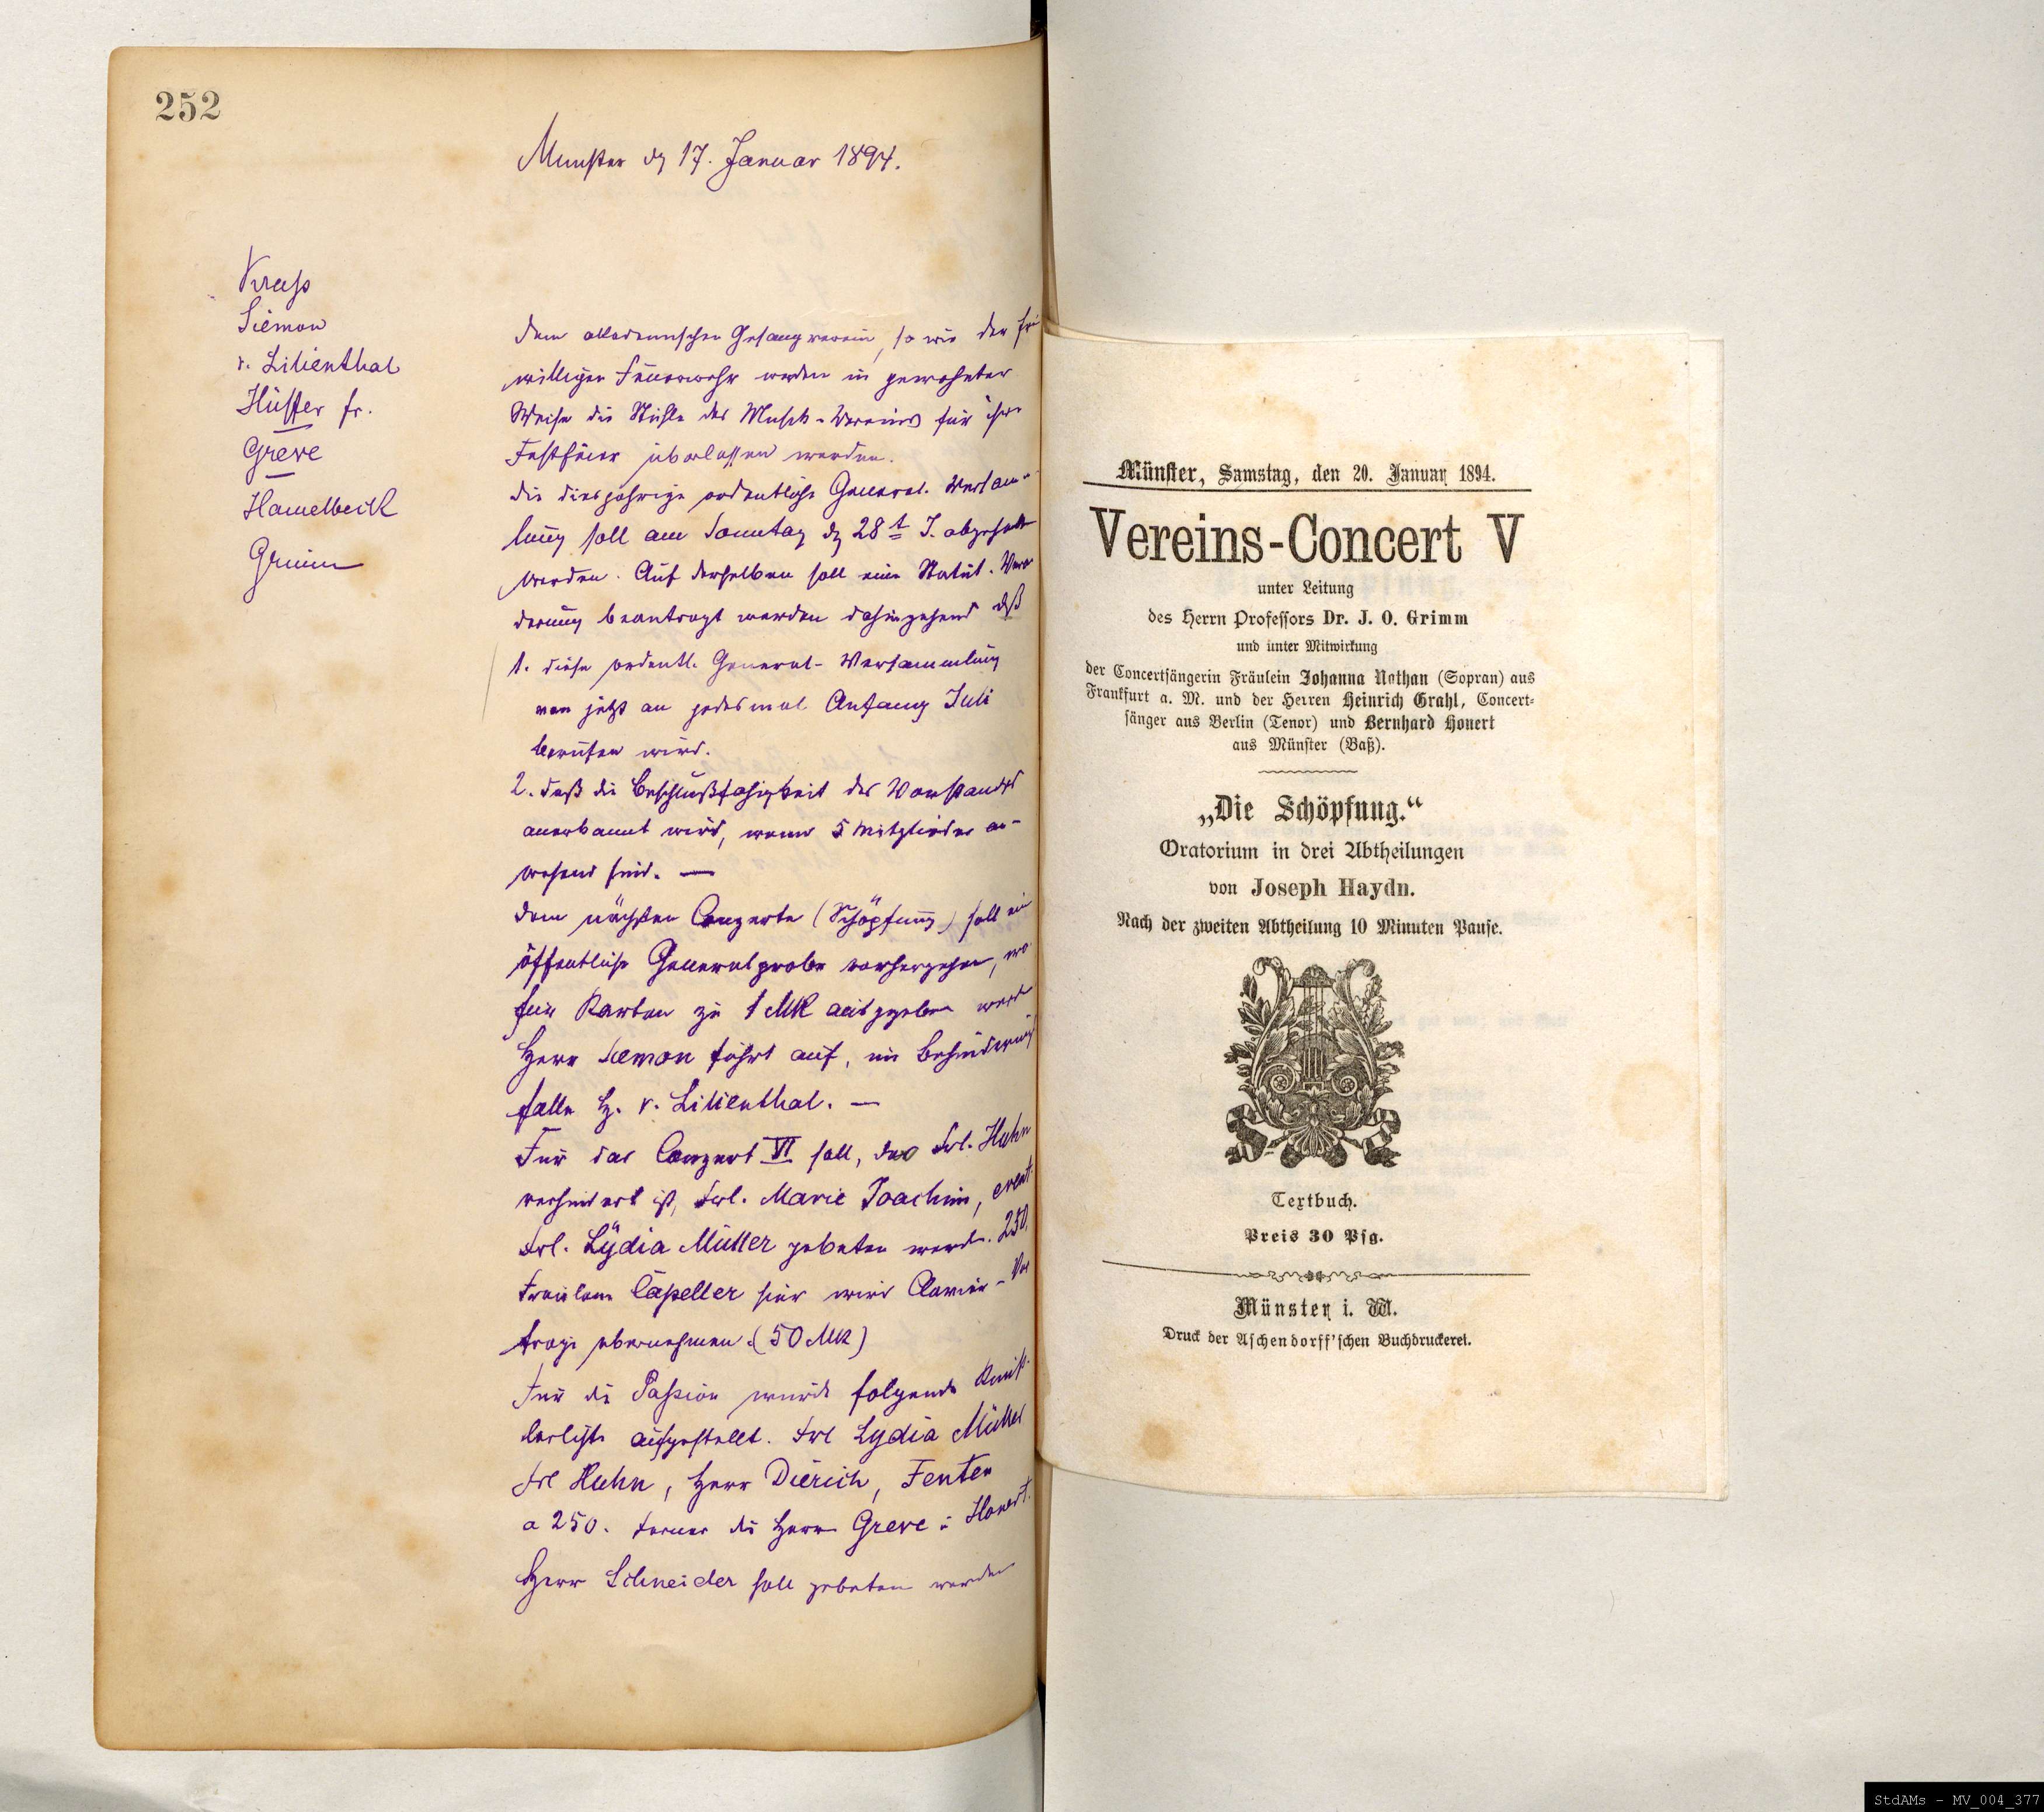 252
Munster dz 17. Januar 1894.
Krass
Siemon
v. Lilienthal
Hüffer fr.
Greve
Hamelbeck
Grimm
Dem akademischen Gesangverein, so wie der frei
willigen Feuerwehr werden in gewohnter
Weise die Stühle des Musik-Vereins für ihre
Festfeier überlassen werden.
Die diesjährige ordentliche General-Versam-
lung soll am Sonntag dz 28t J. abgehalt
werden. Auf derselben soll eine Statut-Verän
derung beantragt werden dahingehend daß
1. diese ordentl. General-Versammlung
von jetzt an jedesmal Anfang Juli
berufen wird.
2. daß die Beschlußfähigkeit des Vorstandes
anerkannt wird, wenn 5 Mitglieder an-
wesend sind. —
Dem nächsten Conzerte (Schöpfung) soll ein
öffentliche Generalprobe vorhergehen, wo
für Karten zu 1 MK ausgegeben werd
Herr Siemon führt auf, im Behinderung
falle H. v. Lilienthal. —
Für das Conzert VI soll, da Frl. Huhn
verhindert ist, Frl. Marie Joachim, event.
Frl. Lydia Müller gebeten werd. 250.
Fräulein Cäpeller hier wird Clavier-Vor
träge übernehmen. (50 MK)
Für die Passion wurde folgende Künst
lerliste aufgestellt. Frl Lydia Müller
Frl Huhn, Herr Dierich, Fenten
a 250. Ferner die Herrn Greve u Honert.
Herr Schneider soll gebeten werden
Münster, Samstag, den 20. Januar 1894.
Vereins-Concert V
unter Leitung
des Herrn Professors Dr. J. O. Grimm
und unter Mitwirkung
der Concertsängerin Fräulein Johanna Nathan (Sopran) aus
Frankfurt a. M. und der Herren Heinrich Grahl, Concert-
sänger aus Berlin (Tenor) und Bernhard Honert
aus Münster (Baß).
„Die Schöpfung.“
Oratorium in drei Abtheilungen
von Joseph Haydn.
Nach der zweiten Abtheilung 10 Minuten Pause.
Textbuch.
Preis 30 Pfg.
Münster i. W.
Druck der Aschendorff'schen Buchdruckerei.
StdAMs - MV_004_377